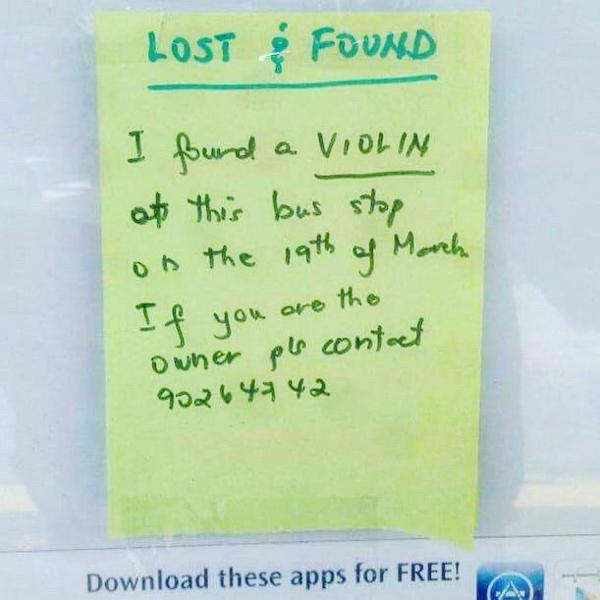 LOST & FOUND
I found a VIOLIN
at this bus stop
on the 19th of March
If you are the
owner pls contact
90264742
Download these apps for FREE!